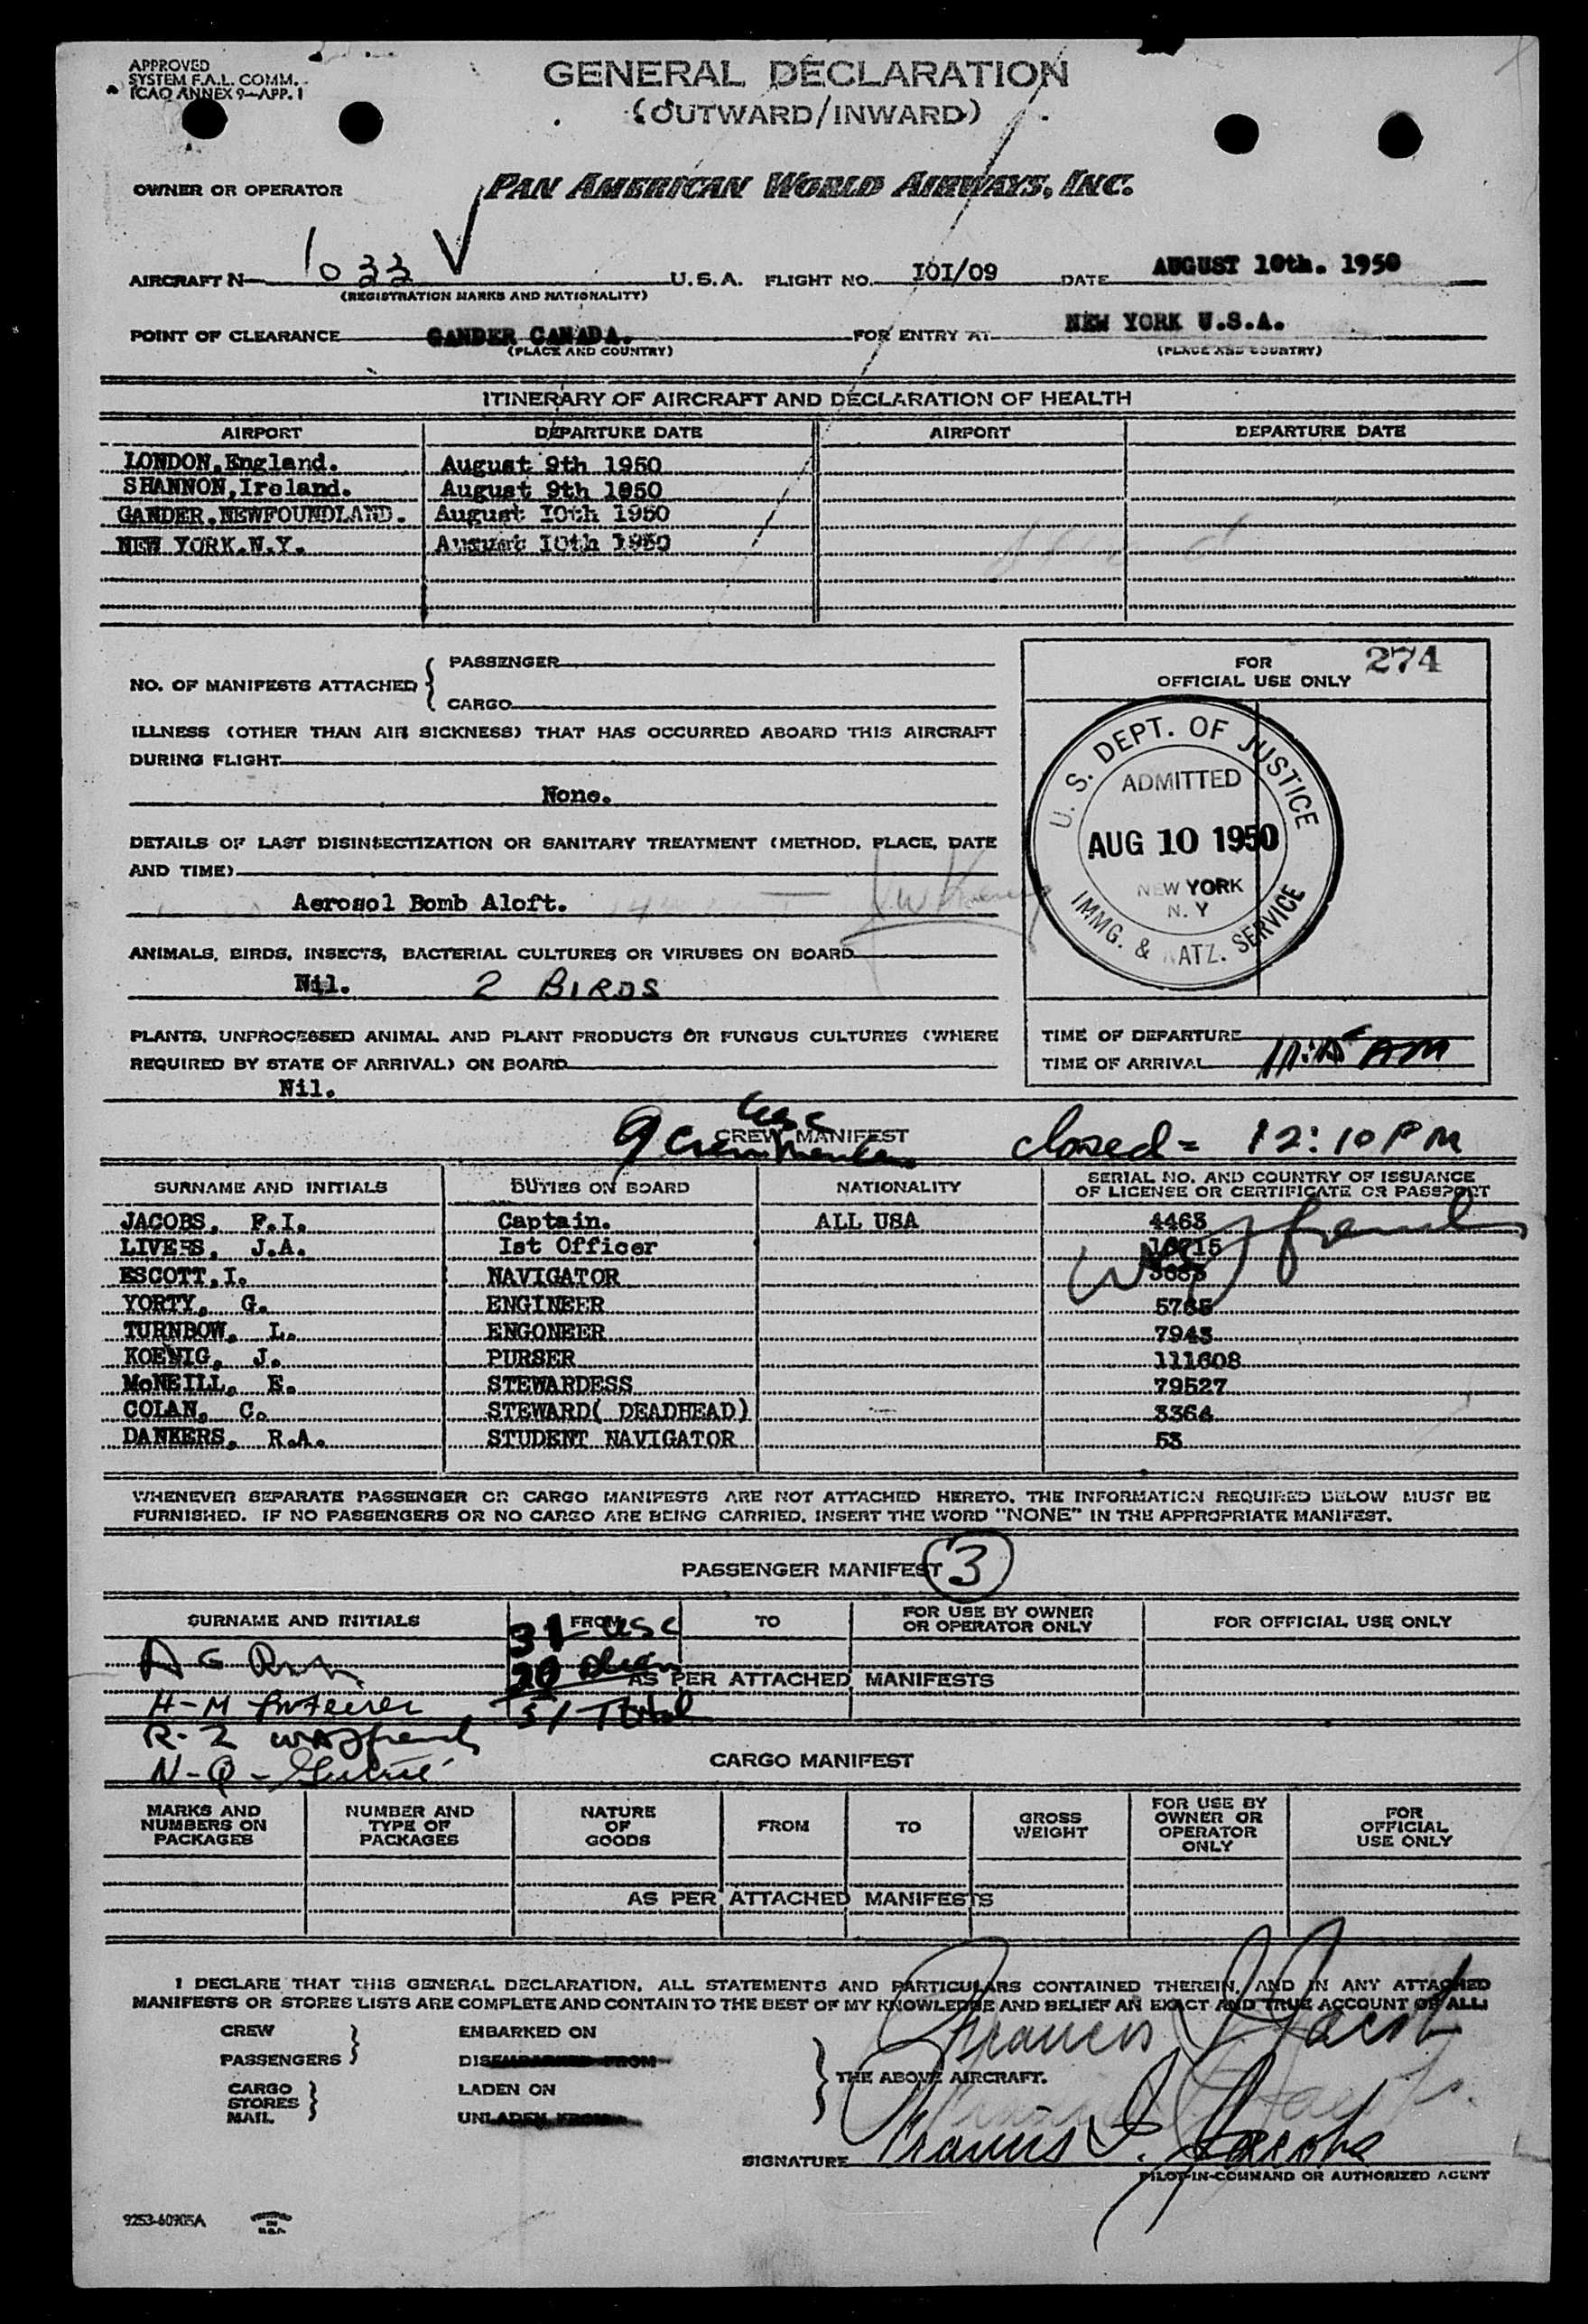 APPROVED
SYSTEM F.A.L. COMM.
ICAO ANNEX 9-APP. 1
GENERAL DECLARATION
(OUTWARD/INWARD)
OWNER OR OPERATOR PAN AMERICAN WORLD AIRWAYS, INC.
AIRCRAFT N 1033 U.S.A. FLIGHT NO. IOI/09 DATE AUGUST 10th. 1950
(REGISTRATION MARKS AND NATIONALITY)
POINT OF CLEARANCE GANDER CANADA. FOR ENTRY AT NEW YORK U.S.A.
(PLACE AND COUNTRY) (PLACE AND COUNTRY)
ITINERARY OF AIRCRAFT AND DECLARATION OF HEALTH
AIRPORT DEPARTURE DATE AIRPORT DEPARTURE DATE
LONDON,England. August 9th 1950
SHANNON,Ireland. August 9th 1950
GANDER.NEWFOUNDLAND. August IOth 1950
NEW YORK.N.Y. August IOth 1950
NO. OF MANIFESTS ATTACHED { PASSENGER
CARGO
ILLNESS (OTHER THAN AIR SICKNESS) THAT HAS OCCURRED ABOARD THIS AIRCRAFT
DURING FLIGHT
None.
DETAILS OF LAST DISINSECTIZATION OR SANITARY TREATMENT (METHOD, PLACE, DATE
AND TIME)
Aerosol Bomb Aloft.
ANIMALS, BIRDS, INSECTS, BACTERIAL CULTURES OR VIRUSES ON BOARD
Nil. 2 BIRDS
PLANTS, UNPROCESSED ANIMAL AND PLANT PRODUCTS OR FUNGUS CULTURES (WHERE
REQUIRED BY STATE OF ARRIVAL) ON BOARD
Nil.
FOR
OFFICIAL USE ONLY 274
U. S. DEPT. OF JUSTICE
ADMITTED
AUG 10 1950
NEW YORK
N. Y
IMMG. & NATZ. SERVICE
TIME OF DEPARTURE
TIME OF ARRIVAL AM
usc
9 Crew CREW MANIFEST closed = 12:10 PM
SURNAME AND INITIALS DUTIES ON BOARD NATIONALITY SERIAL NO. AND COUNTRY OF ISSUANCE
OF LICENSE OR CERTIFICATE OR PASSPORT
JACOBS, F.I. Captain. ALL USA 4463
LIVERS, J.A. Ist Officer
ESCOTT,I. NAVIGATOR
YORTY, G. ENGINEER 5765
TURNBOW, L. ENGONEER 7943
KOENIG, J. PURSER 111608
McNEILL, E. STEWARDESS 79527
COLAN, C. STEWARD( DEADHEAD) 3364
DANKERS, R.A. STUDENT NAVIGATOR 53
WHENEVER SEPARATE PASSENGER OR CARGO MANIFESTS ARE NOT ATTACHED HERETO, THE INFORMATION REQUIRED BELOW MUST BE
FURNISHED. IF NO PASSENGERS OR NO CARGO ARE BEING CARRIED, INSERT THE WORD "NONE" IN THE APPROPRIATE MANIFEST.
PASSENGER MANIFEST 3
SURNAME AND INITIALS FROM TO FOR USE BY OWNER
OR OPERATOR ONLY FOR OFFICIAL USE ONLY
31 usc
A G
20
AS PER ATTACHED MANIFESTS
H-M
51 Total
R-Z
N-Q-
CARGO MANIFEST
MARKS AND
NUMBERS ON
PACKAGES NUMBER AND
TYPE OF
PACKAGES NATURE
OF
GOODS FROM TO GROSS
WEIGHT FOR USE BY
OWNER OR
OPERATOR
ONLY FOR
OFFICIAL
USE ONLY
AS PER ATTACHED MANIFESTS
I DECLARE THAT THIS GENERAL DECLARATION, ALL STATEMENTS AND PARTICULARS CONTAINED THEREIN, AND IN ANY ATTACHED
MANIFESTS OR STORES LISTS ARE COMPLETE AND CONTAIN TO THE BEST OF MY KNOWLEDGE AND BELIEF AN EXACT AND TRUE ACCOUNT OF ALL:
CREW
PASSENGERS } EMBARKED ON
DISEMBARKED FROM
CARGO
STORES
MAIL } LADEN ON
UNLADEN FROM
} THE ABOVE AIRCRAFT.
Francis I Jacobs
SIGNATURE Francis I. Jacobs
PILOT-IN-COMMAND OR AUTHORIZED AGENT
9253-60905A PRINTED
IN
U.S.A.